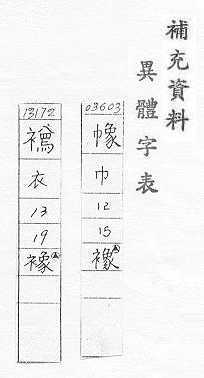 補充資料
異體字表
03603
巾
12
15
襐
13172
衣
13
19
襐